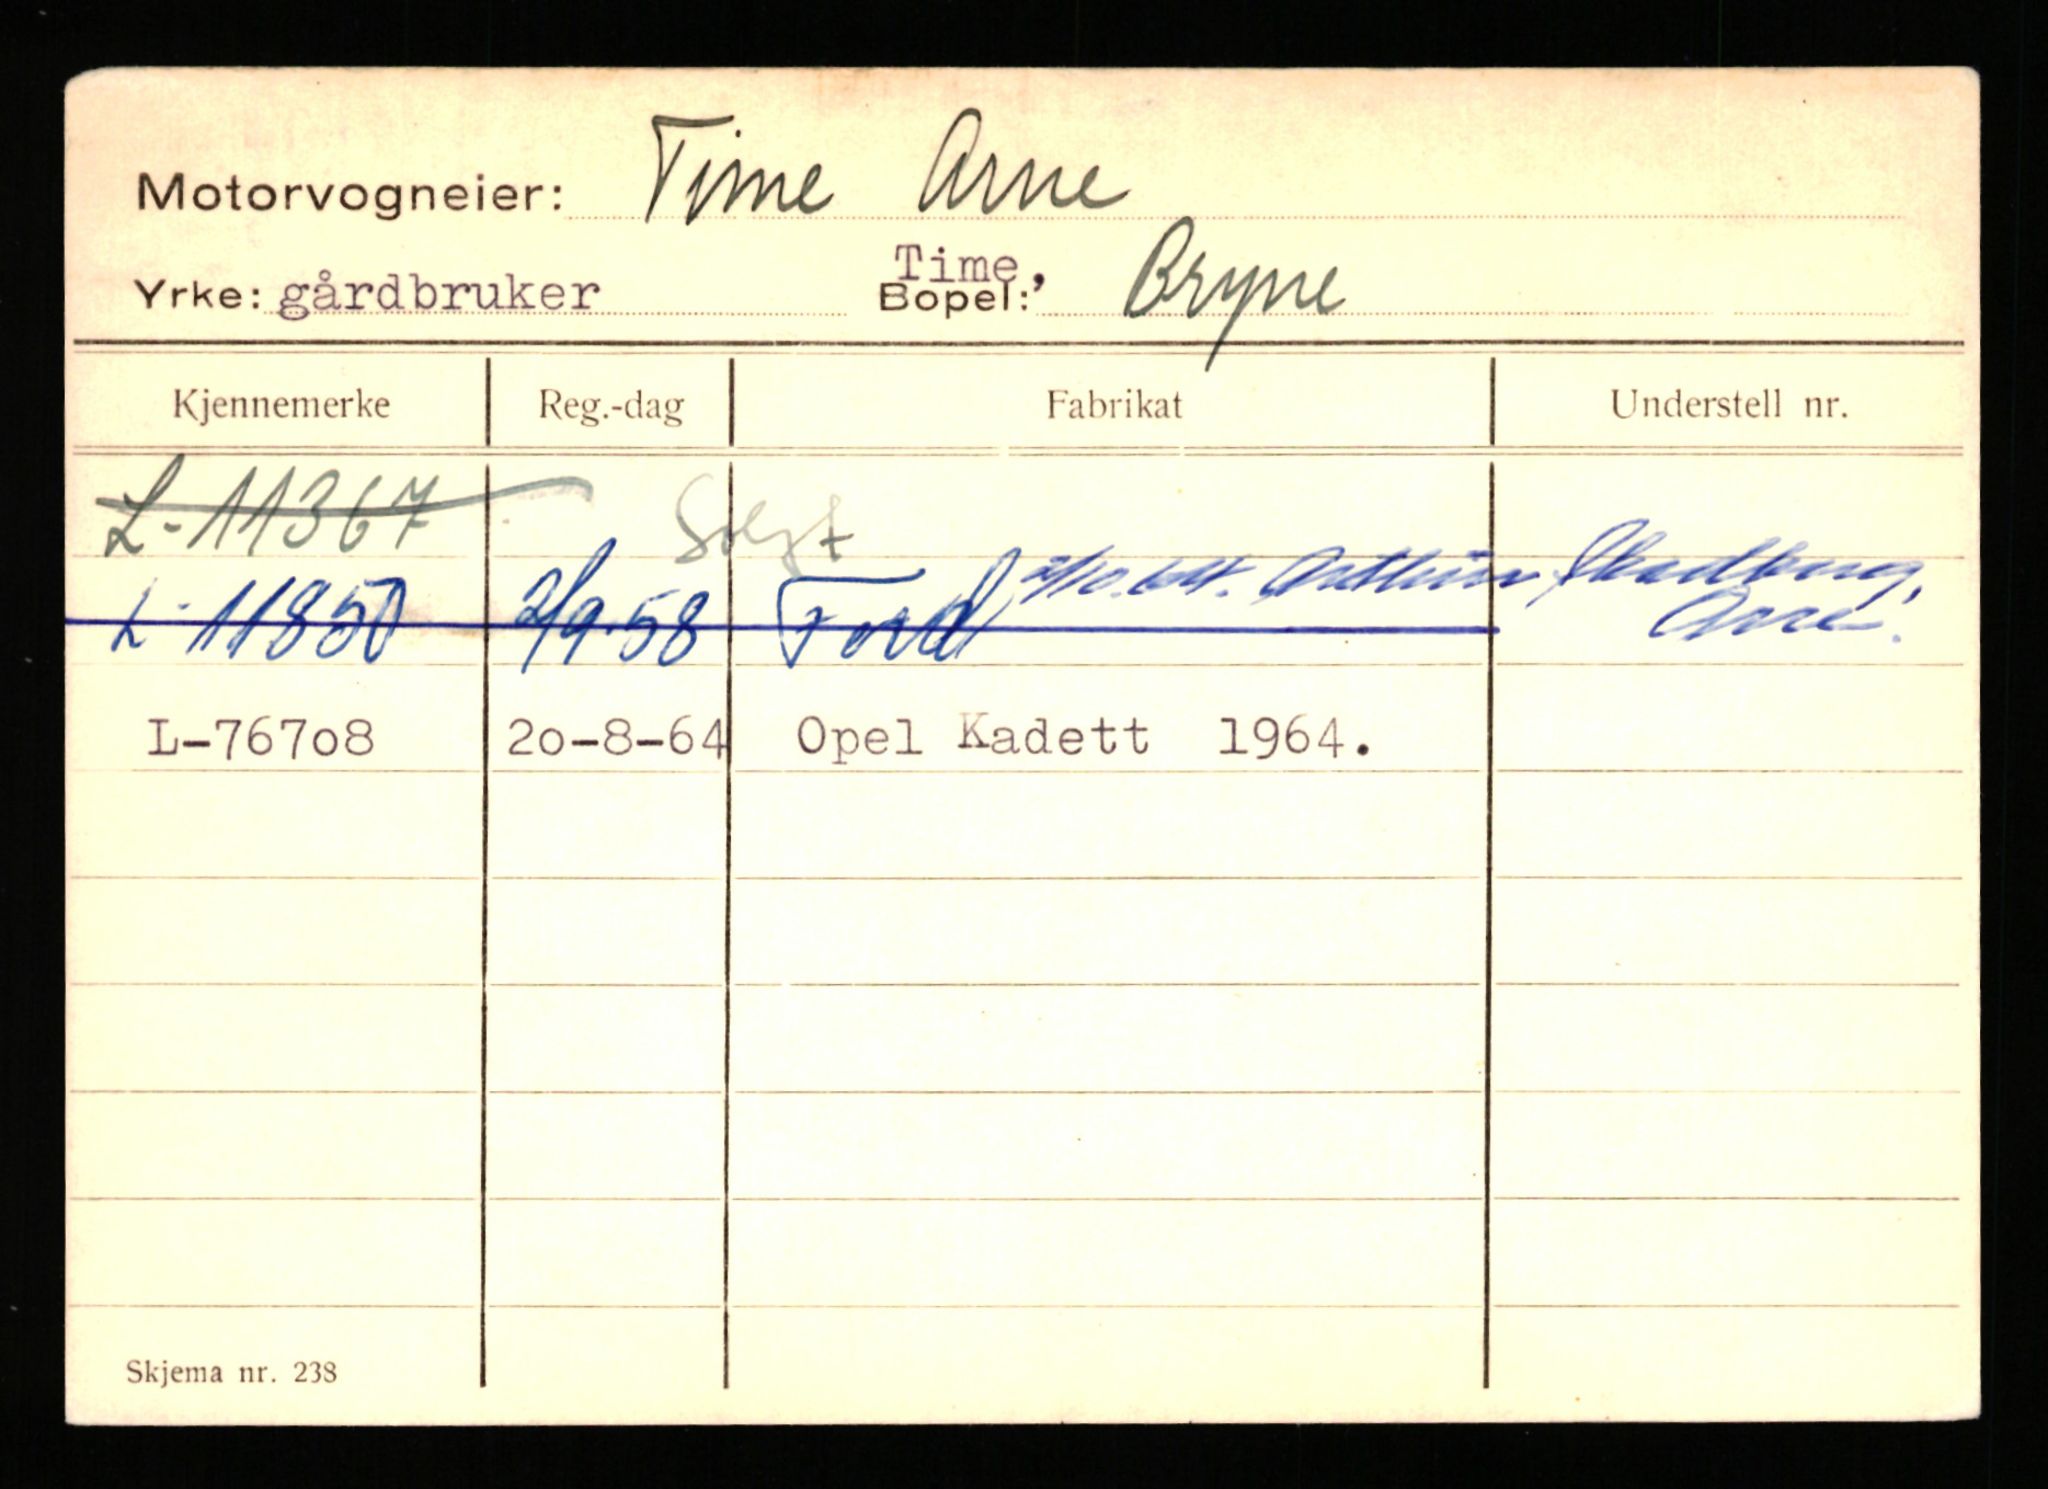 Motorvogneier: Time Arne
Yrke: gårdbruker Bopel: Time, Bryne
Kjennemerke Reg.-dag Fabrikat Understell nr.
L-11367 Solgt
L-11850 2/9.58 Ford 2/10.64. Arthur Skadberg,
Arne.
L-767o8 2o-8-64 Opel Kadett 1964.
Skjema nr. 238